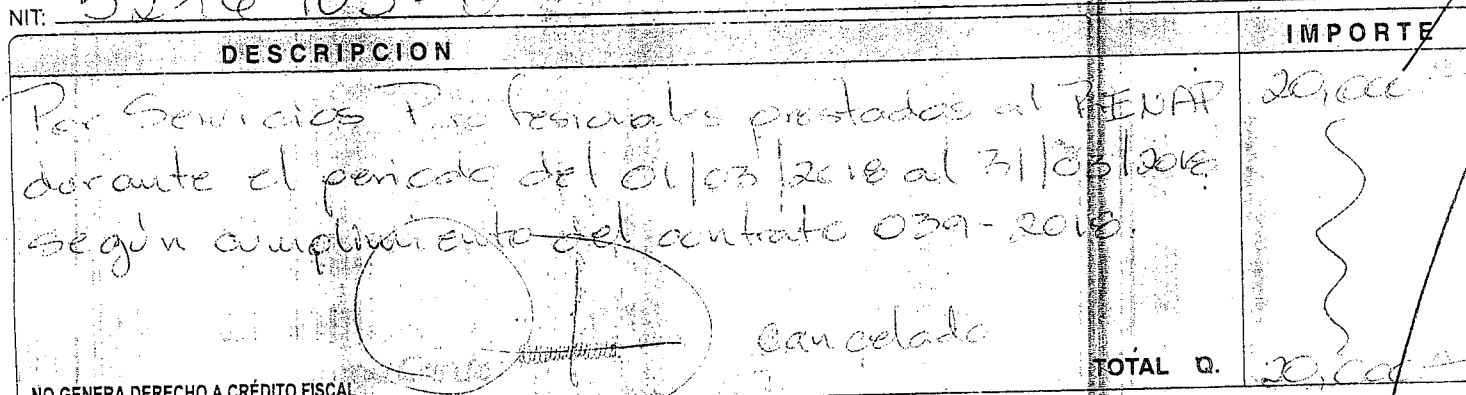 NIT:
DESCRIPCION IMPORTE
Por Servicios Profesionales prestados al RENAP 20,000
durante el periodo del 01/03/2018 al 31/03/2018
según cumplimiento del contrato 039-2018.
cancelado
TOTAL Q. 20,000
NO GENERA DERECHO A CRÉDITO FISCAL